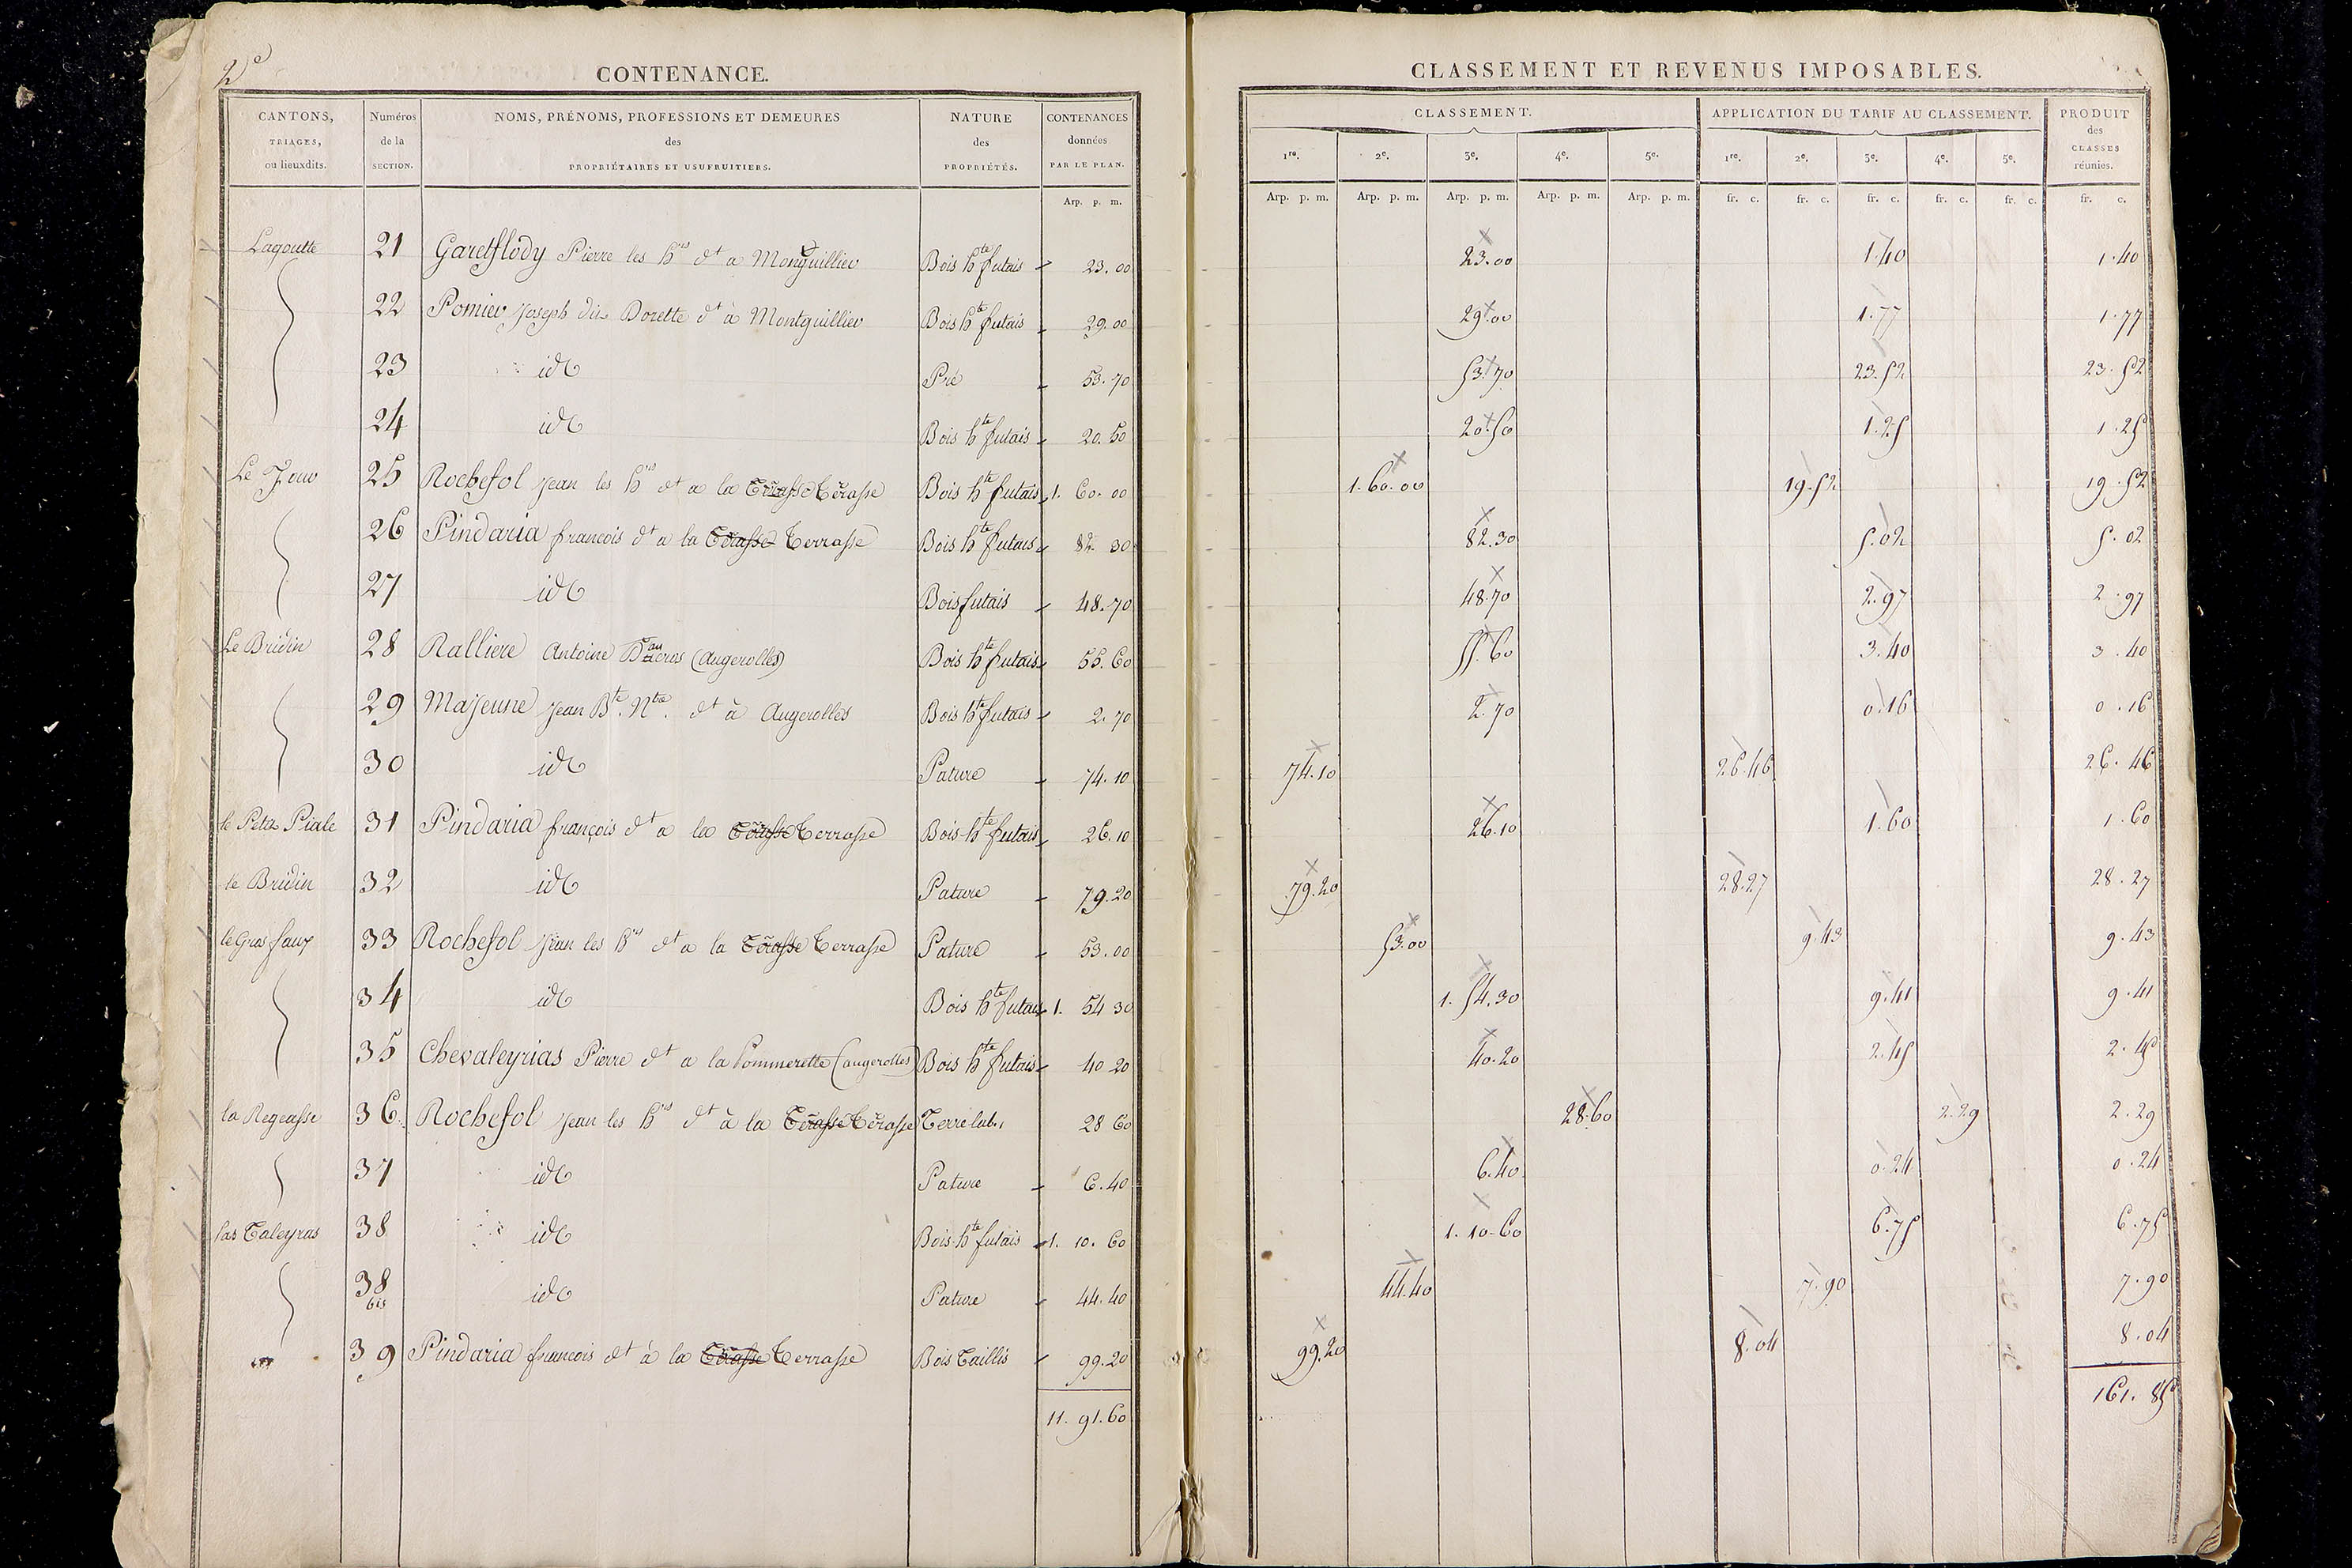 2e
CONTENANCE.
CANTONS, TRIAGES, ou lieuxdits. Numéros de la SECTION. NOMS, PRÉNOMS, PROFESSIONS ET DEMEURES des PROPRIÉTAIRES ET USUFRUITIERS. NATURE des PROPRIÉTÉS. CONTENANCES données PAR LE PLAN.
Arp. p. m.
CLASSEMENT ET REVENUS IMPOSABLES.
CLASSEMENT. APPLICATION DU TARIF AU CLASSEMENT. PRODUIT des CLASSES réunies.
1re. 2e. 3e. 4e. 5e. 1re. 2e. 3e. 4e. 5e.
Arp. p. m. Arp. p. m. Arp. p. m. Arp. p. m. Arp. p. m. fr. c. fr. c. fr. c. fr. c. fr. c. fr. c.
Lagoutte 21 Pierre les hrs dt a Montguillier Bois hte futais 23.00 23.00 1.40 1.40
22 Pomier Joseph dit Dorette dt à Montguillier Bois hte futais 29.00 29.00 1.77 1.77
23 id Pré 53.70 53.70 23.52 23.52
24 id Bois hte futais 20.50 20.50 1.25 1.25
Le 25 Rochefol Jean les hrs dt a la Terasse Terasse Bois hte futais 1.60.00 1.60.00 19.52 19.52
26 Pindaria francois dt a la Terasse Terrasse Bois hte futais 82.30 82.30 5.02 5.02
27 id Bois futais 48.70 48.70 2.97 2.97
Le Bridin 28 Ralliere Antoine (Augerolles) Bois hte futais 55.60 55.60 3.40 3.40
29 Majeune Jean Bte. Ntre. dt à Augerolles Bois hte futais 2.70 2.70 0.16 0.16
30 id Pature 74.10 74.10 26.46 26.46
le Petit Piale 31 Pindaria françois dt a la Terasse Terrasse Bois hte futais 26.10 26.10 1.60 1.60
le Bridin 32 id Pature 79.20 79.20 28.27 28.27
le Gros faux 33 Rochefol Jean les hrs dt a la Terasse Terrasse Pature 53.00 53.00 9.43 9.43
34 id Bois hte futais 1. 54 30 1.54.30 9.41 9.41
35 Chevaleyrias Pierre dt a la Pommerette (augerolles) Bois hte futais 40 20 40.20 2.45 2.45
la Regeasse 36 Rochefol Jean les hrs dt à la Terasse Terasse Terre lab. 28 60 28.60 2.29 2.29
37 id Pature 6.40 6.40 0.24 0.24
las Taleyras 38 id Bois hte futais 1. 10. 60 1.10.60 6.75 6.75
38 bis id Pature 44.40 44.40 7.90 7.90
39 Pindaria francois dt à la Terasse Terrasse Bois Taillis 99.20 99.20 8.04 8.04
11. 91.60 161.85